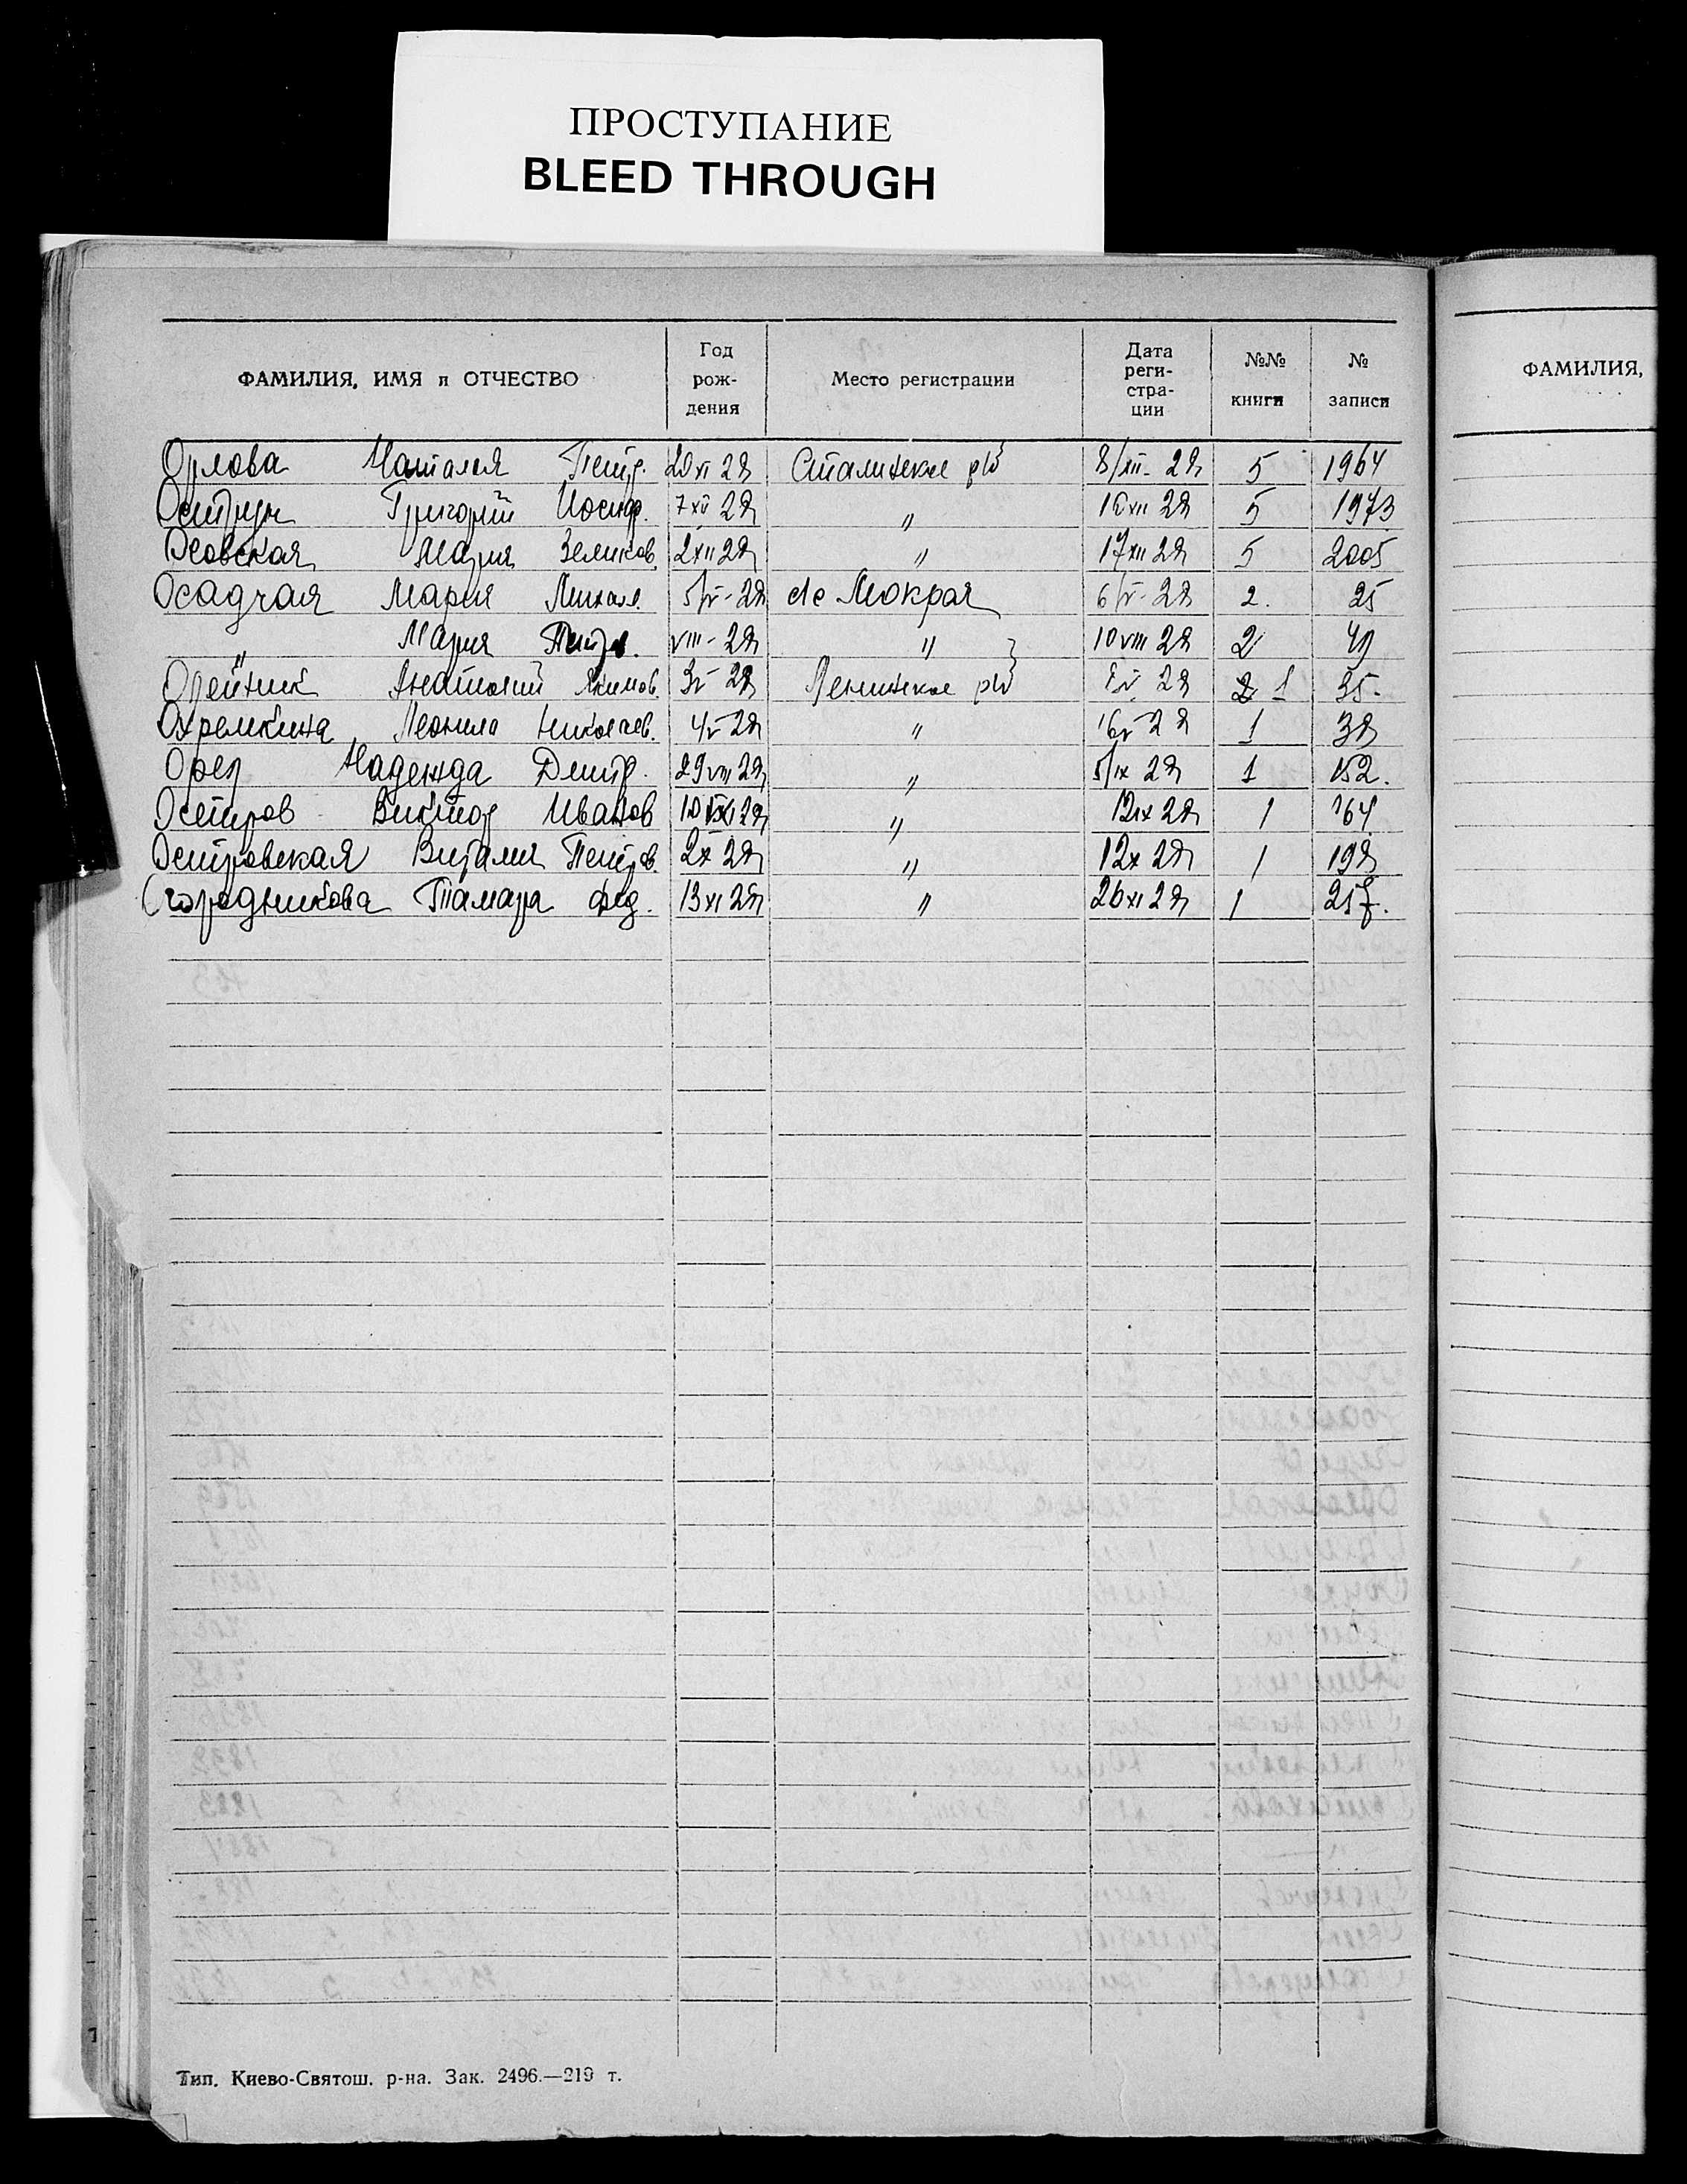 ПРОСТУПАНИЕ
BLEED THROUGH
ФАМИЛИЯ, ИМЯ и ОТЧЕСТВО Год рождения Место регистрации Дата регистрации №№ книги № записи
ФАМИЛИЯ,
Орлова Наталия Петр. 20 XI 28 Сталинское р/б 8/XII-28 5 1964
Григорий Иосиф. 7 XII 28 " 16 XII 28 5 1973
Осовская Мария Зеликов. 2 XII 28 " 17 XII 28 5 2005
Осадчая Мария Михайл. 5/V-28 Мокрая 6/V-28 2. 25
" Мария Петров. VIII-28 " 10 VIII 28 2
Олейник Анатолий Якимов. 3 V 28 Ленинское р/б V 28 1 35.
Охремкина Леонила Николаев. 4 V 28 " 16 V 28 1 38
Орел Надежда Дмитр. 29 VIII 28 " 5/IX 28 1 152.
Осетров Виктор Иванов " 12 IX 28 1 164
Островская Виталия Петров. 2 X 28 " 12 X 28 1 198
Огородникова Тамара Фед. 13 XI 28 " 26 XI 28 1 257.
Тип. Киево-Святош. р-на. Зак. 2496.—219 т.